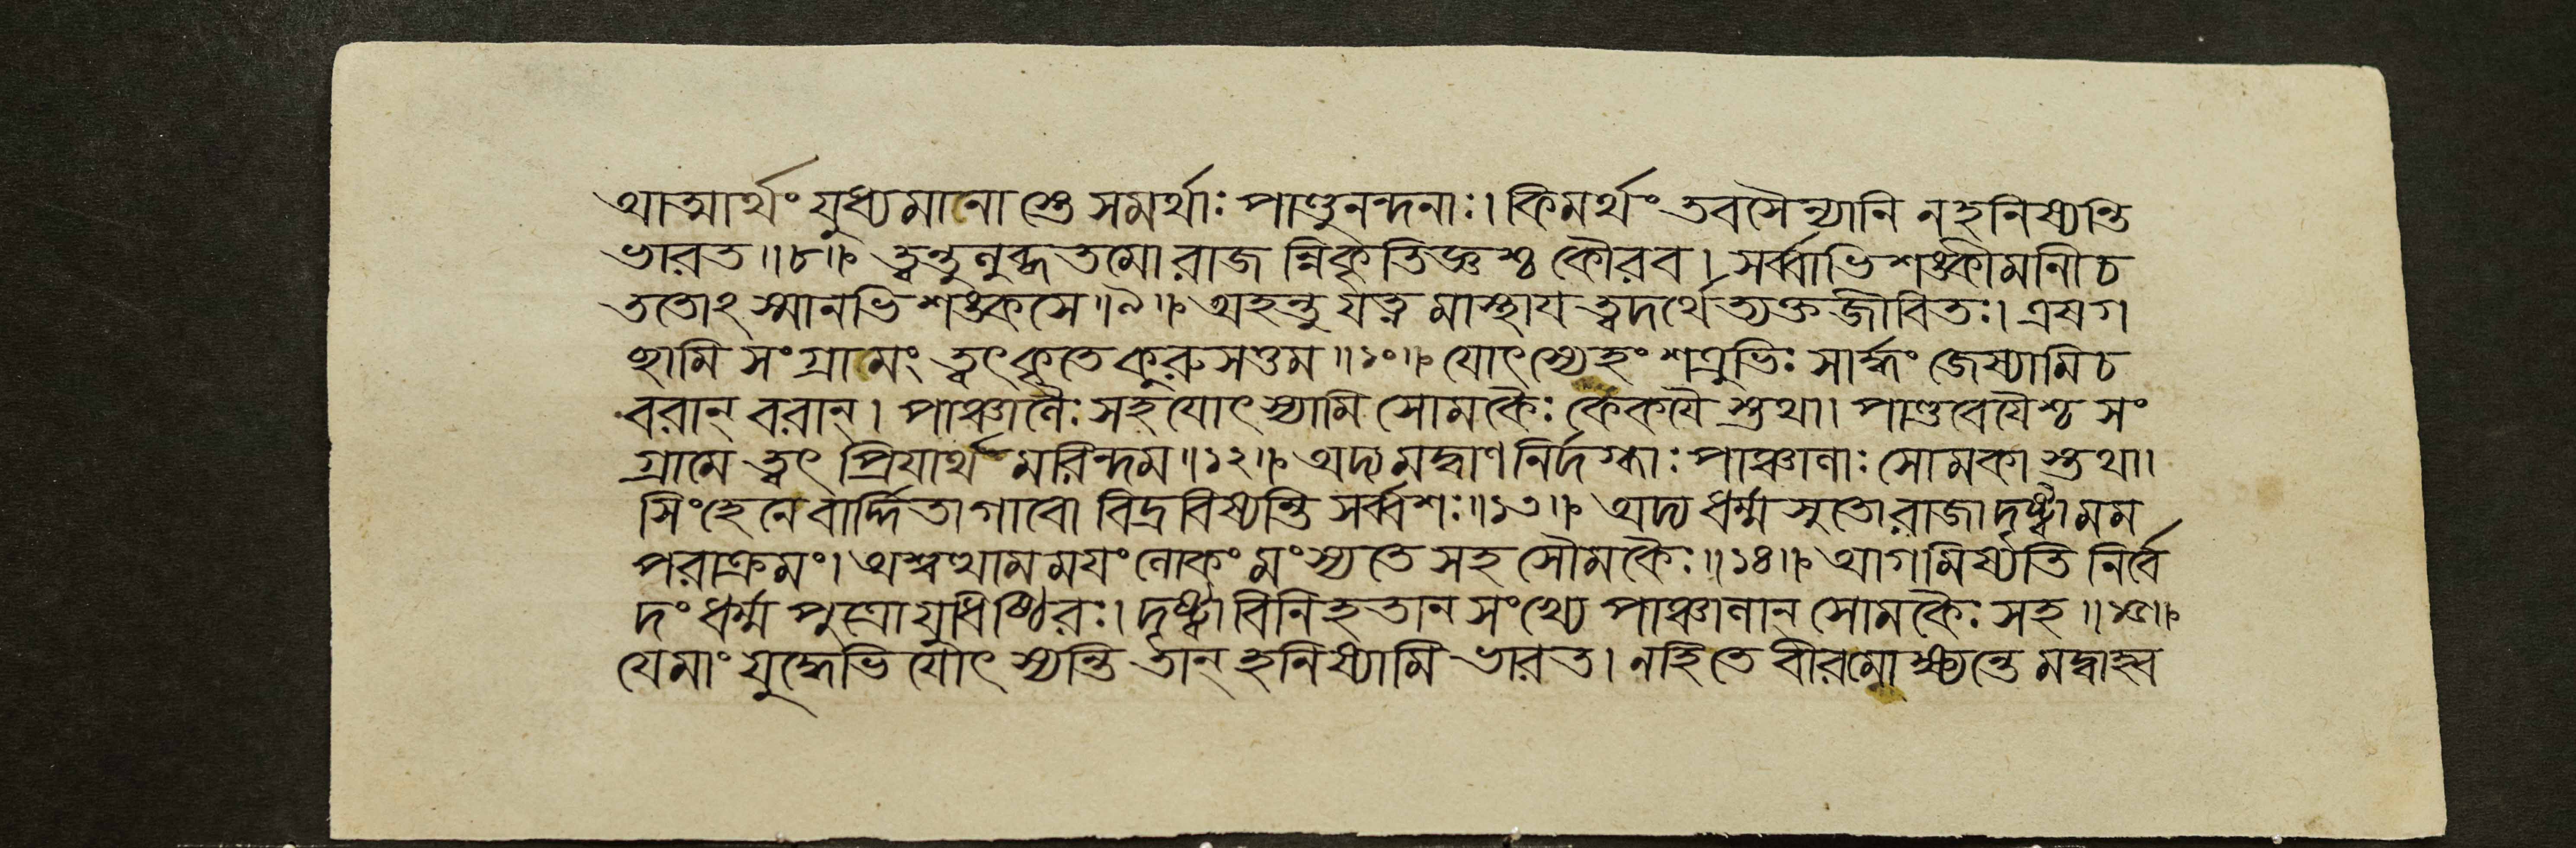 আত্মার্থং যুধ্যমানাস্তে সমর্থাঃ পাণ্ডুনন্দনাঃ। কিমর্থং তবসৈন্যানি নহনিষ্যন্তি
ভারত॥৮॥ ত্বন্তুলুব্ধতমোরাজ ন্নিকৃতিজ্ঞশ্চ কৌরব। সর্ব্বাভিশঙ্কীমানীচ
ততোঽস্মানভিশঙ্কসে॥৯॥ অহন্তু যত্নমাস্থায ত্বদর্থেত্যক্তজীবিতঃ। এষগ
চ্ছামি সংগ্রামং ত্বৎকৃতেকুরুসত্তম॥১০॥ যোৎস্যেহং শত্রুভিঃ সার্দ্ধং জেষ্যামিচ
বরান্ বরান্। পাঞ্চালৈঃ সহযোৎস্যামি সোমকৈঃ কেকযৈস্তথা। পাণ্ডবেযৈশ্চ সং
গ্রামে ত্বৎ প্রিযার্থমরিন্দম॥১২॥ অদ্যমদ্বাণনির্দগ্ধাঃ পাঞ্চালাঃ সোমকাস্তথা।
সিংহেনেবার্দ্দিতাগাবো বিদ্রবিষ্যন্তি সর্ব্বশঃ॥১৩॥ অদ্য ধর্ম্মসুতোরাজা দৃষ্ট্বামম
পরাক্রমং। অশ্বত্থামমযংলোকং মংস্যতে সহ সৌমকৈঃ॥১৪॥ আগমির্ষ্যতি নির্বে
দং ধর্ম্মপুত্রোযুধিষ্ঠিরঃ। দৃষ্ট্বাবিনিহতান সংখ্যে পাঞ্চালান্ সোমকৈঃ সহ॥১৫॥
যেমাং যুদ্ধেভিযোৎস্যন্তি তান্ হনিষ্যামি ভারত। নহিতে বীরমোক্ষ্যন্তে মদ্বাহ্ব